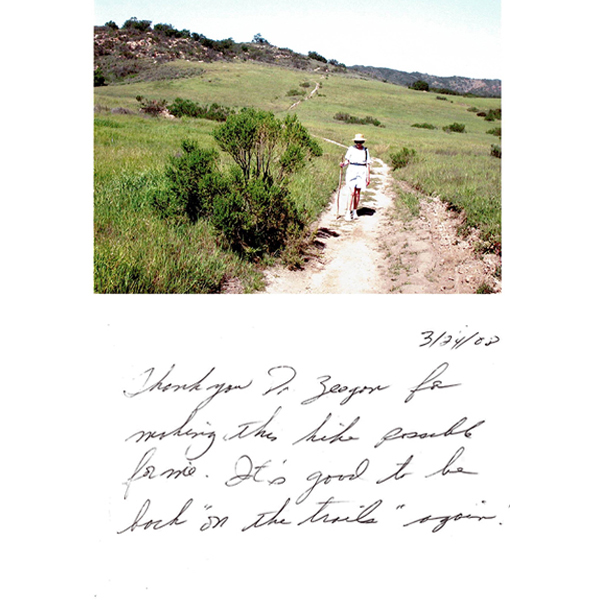 3/24/08
Thank you Dr Zeegon for
making this hike possible
for me. It's good to be
back "on the trails" again.